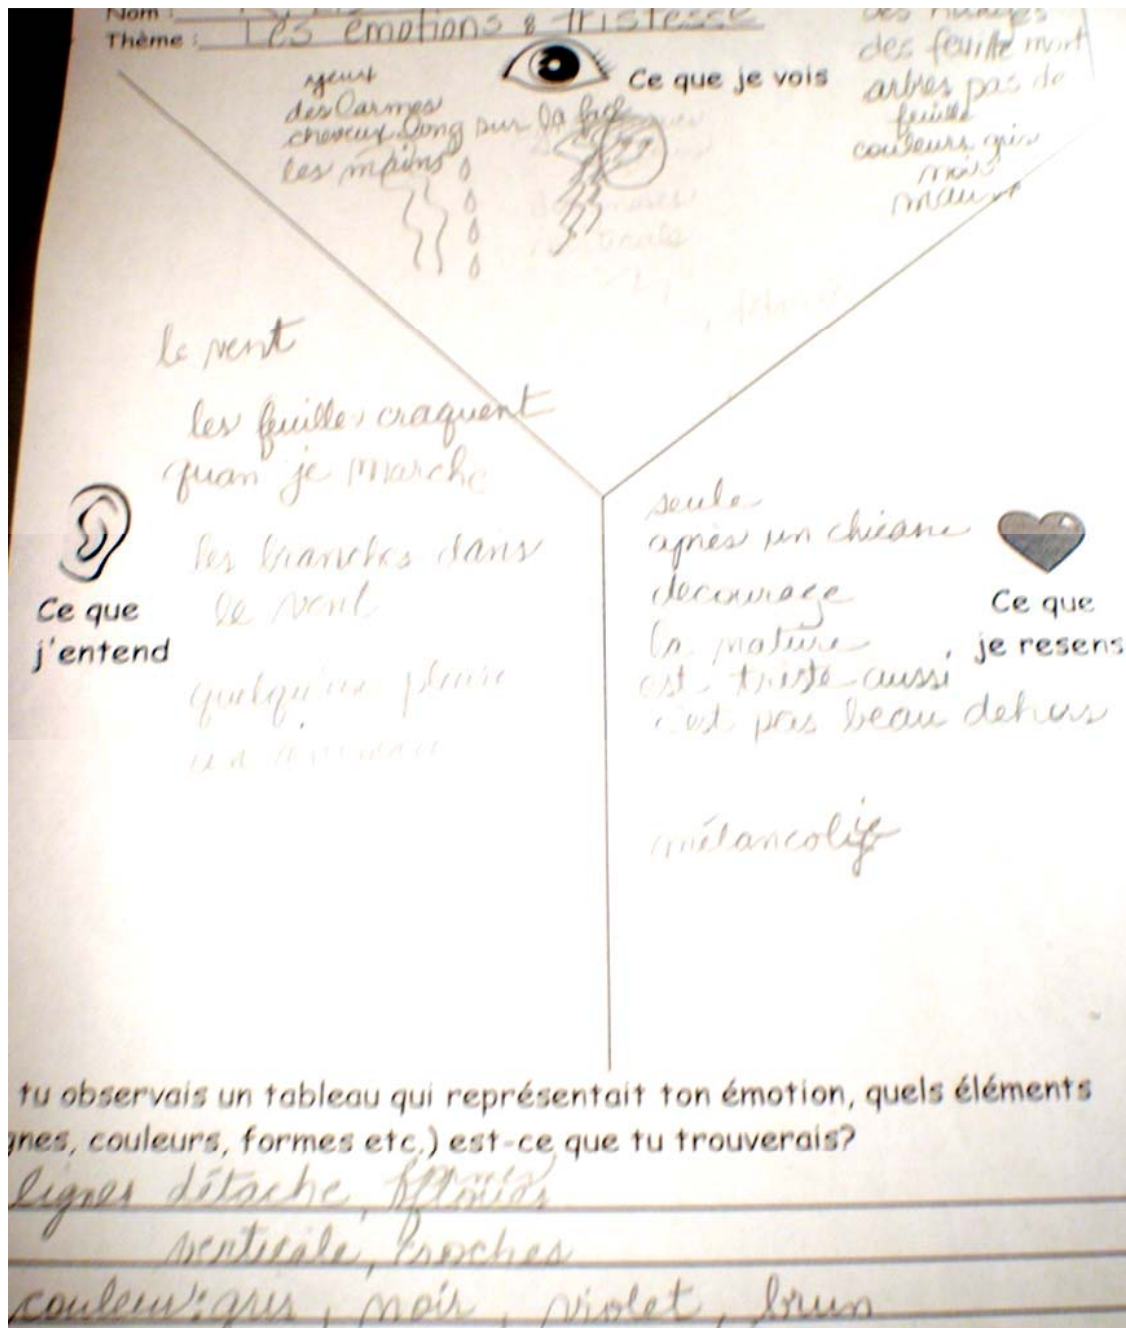 Nom :
Thème : Les émotions : Tristesse
Ce que je vois
yeux
des larmes
cheveux long sur la face
les mains
des nuages
des feuille mort
arbres pas de
feuille
couleurs gris
noir
mauve
le vent
les feuilles craquent
quan je marche
les branches dans
le vent
quelqu'un pleure
Ce que
j'entend
seule
après un chicane
decourage
la nature
est triste aussi
c'est pas beau dehors
mélancolie
Ce que
je resens
tu observais un tableau qui représentait ton émotion, quels éléments
gnes, couleurs, formes etc.) est-ce que tu trouverais?
lignes détache,
verticale, croches
couleur: gris, noir, violet, brun